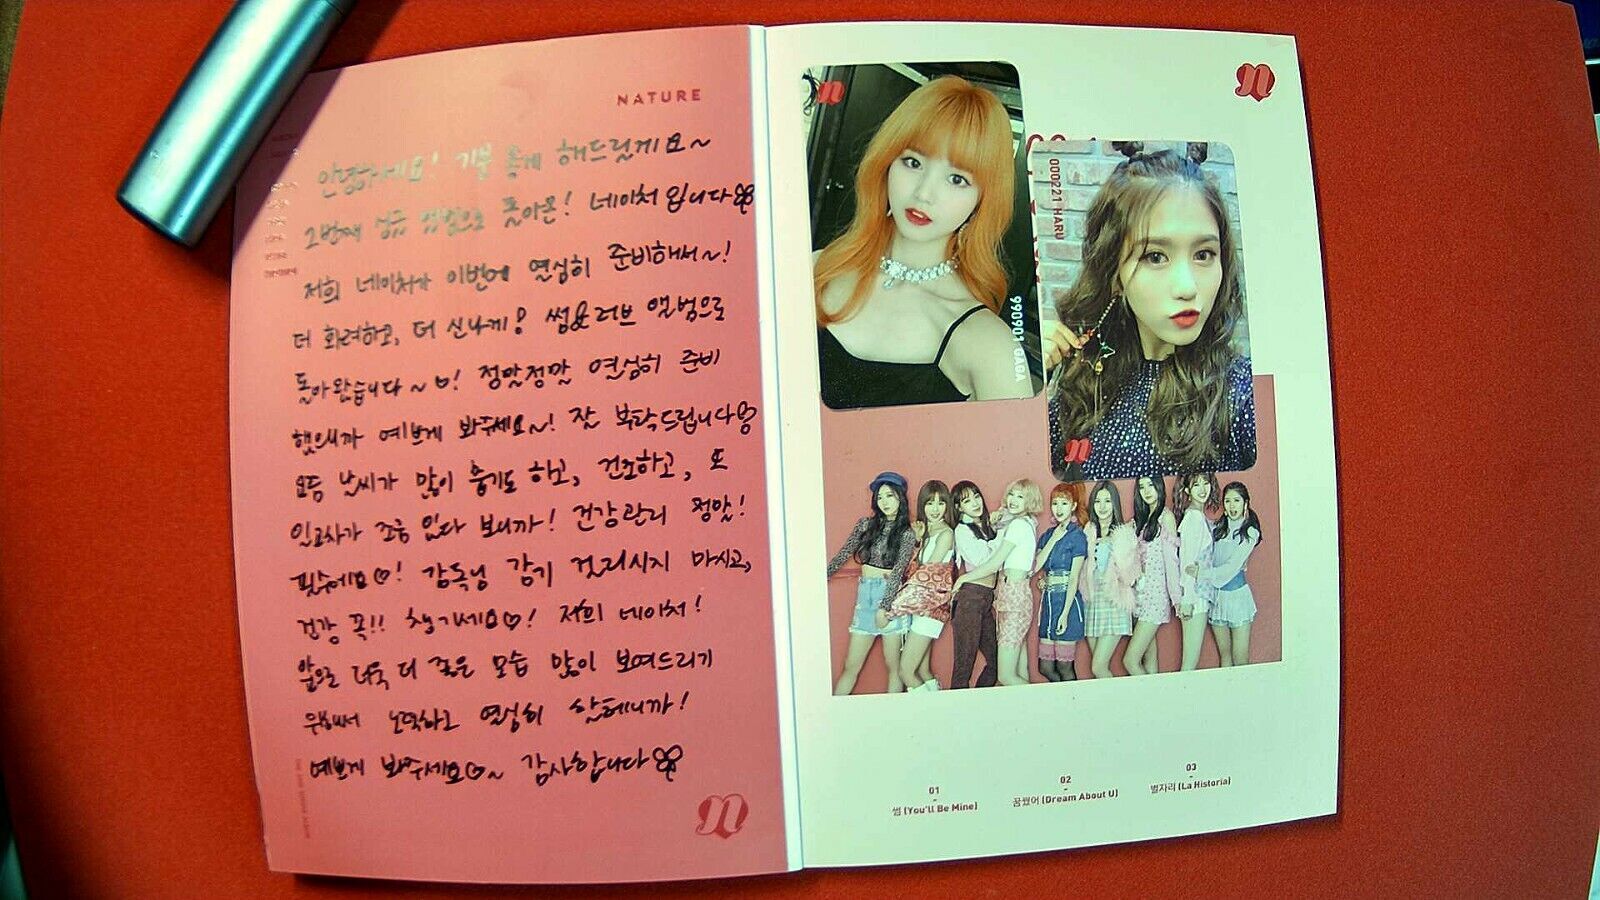 NATURE
안녕하세요! 기분 좋게 해드릴게요~
2번째 싱글 앨범으로 돌아온! 네이처 입니다
저희 네이처가 이번에 열심히 준비해서~!
더 화려하고, 더 신나게! 썸&러브 앨범으로
돌아왔습니다~♡! 정말정말 열심히 준비
했으니까 예쁘게 봐주세요~! 잘 부탁드립니다
요즘 날씨가 많이 춥기도 하고, 건조하고, 또
일교차가 조금 있다 보니까! 건강관리 정말!
필수에요♡! 감독님 감기 걸리시지 마시고,
건강 꼭!! 챙기세요♡! 저희 네이처!
앞으로 더욱 더 좋은 모습 많이 보여드리기
위해서 노력하고 열심히 할테니까!
예쁘게 봐주세요♡~ 감사합니다
n
n
n
990901 GAGA
000221 HARU
n
01
썸 (You'll Be Mine)
02
꿈꿨어 (Dream About U)
03
별자리 (La Historia)